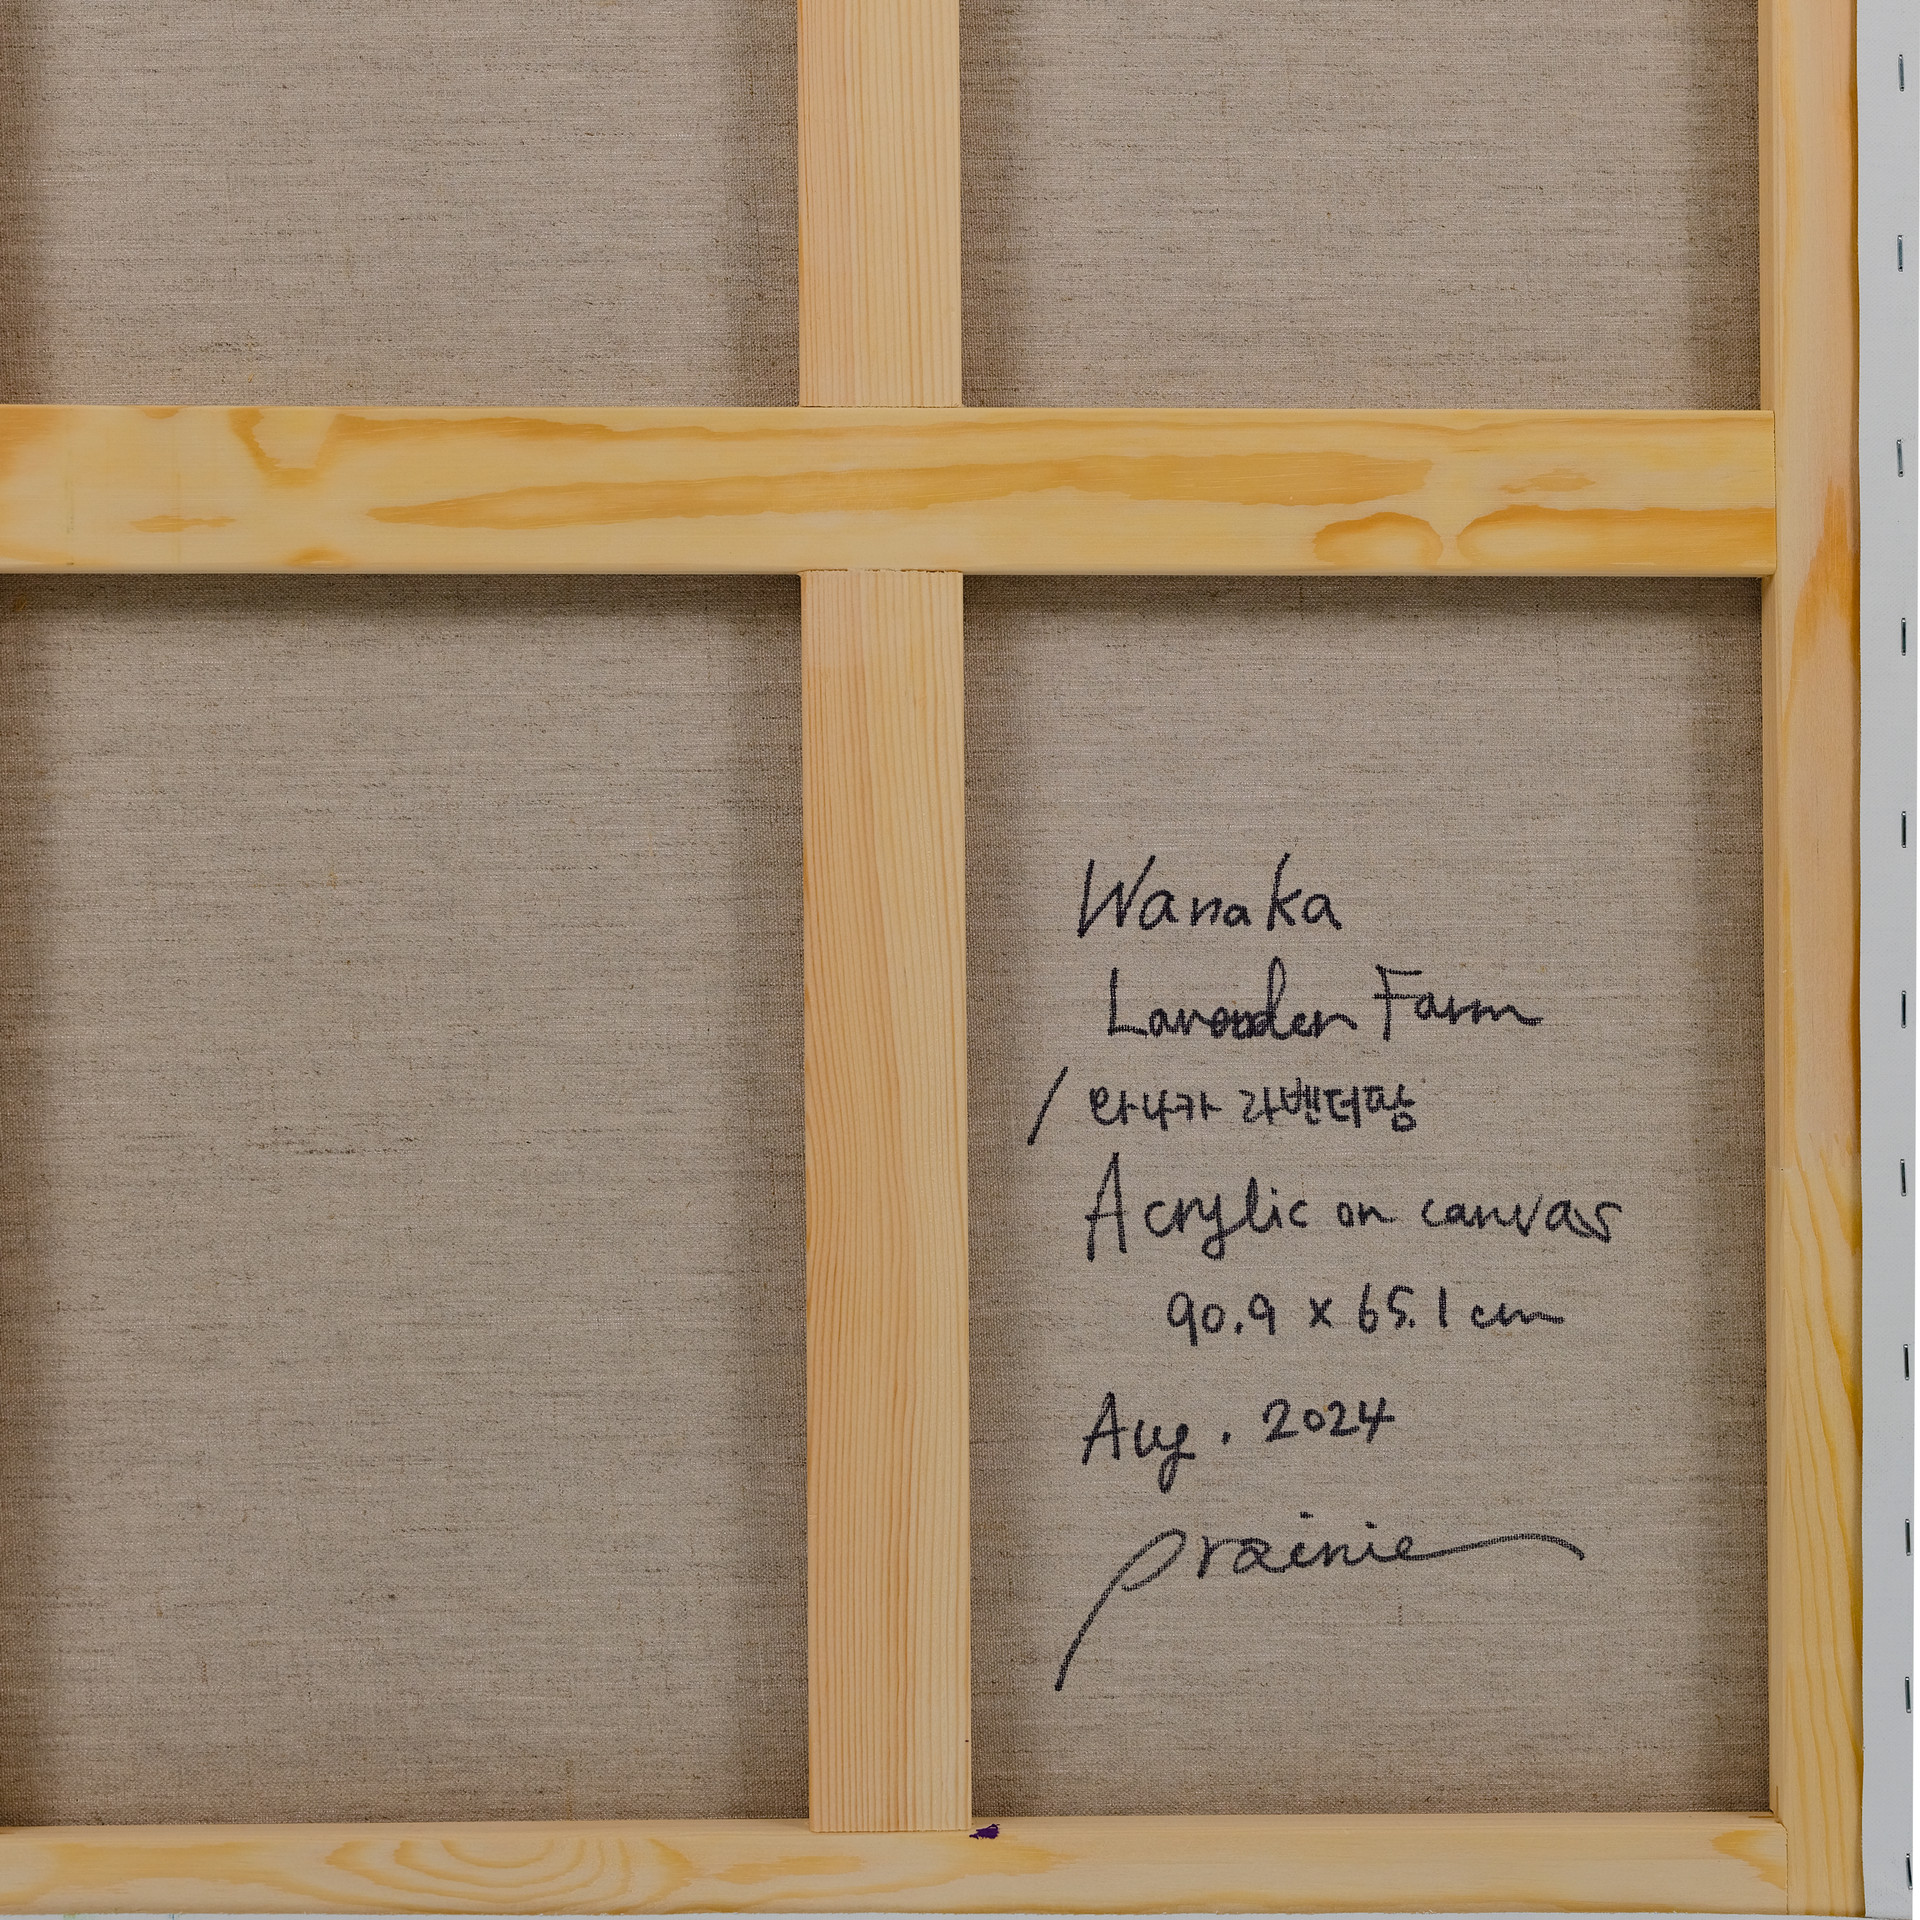 Wanaka
Lavender Farm
/ 와나카 라벤더팜
Acrylic on canvas
90.9 x 65.1 cm
Aug. 2024
prairie